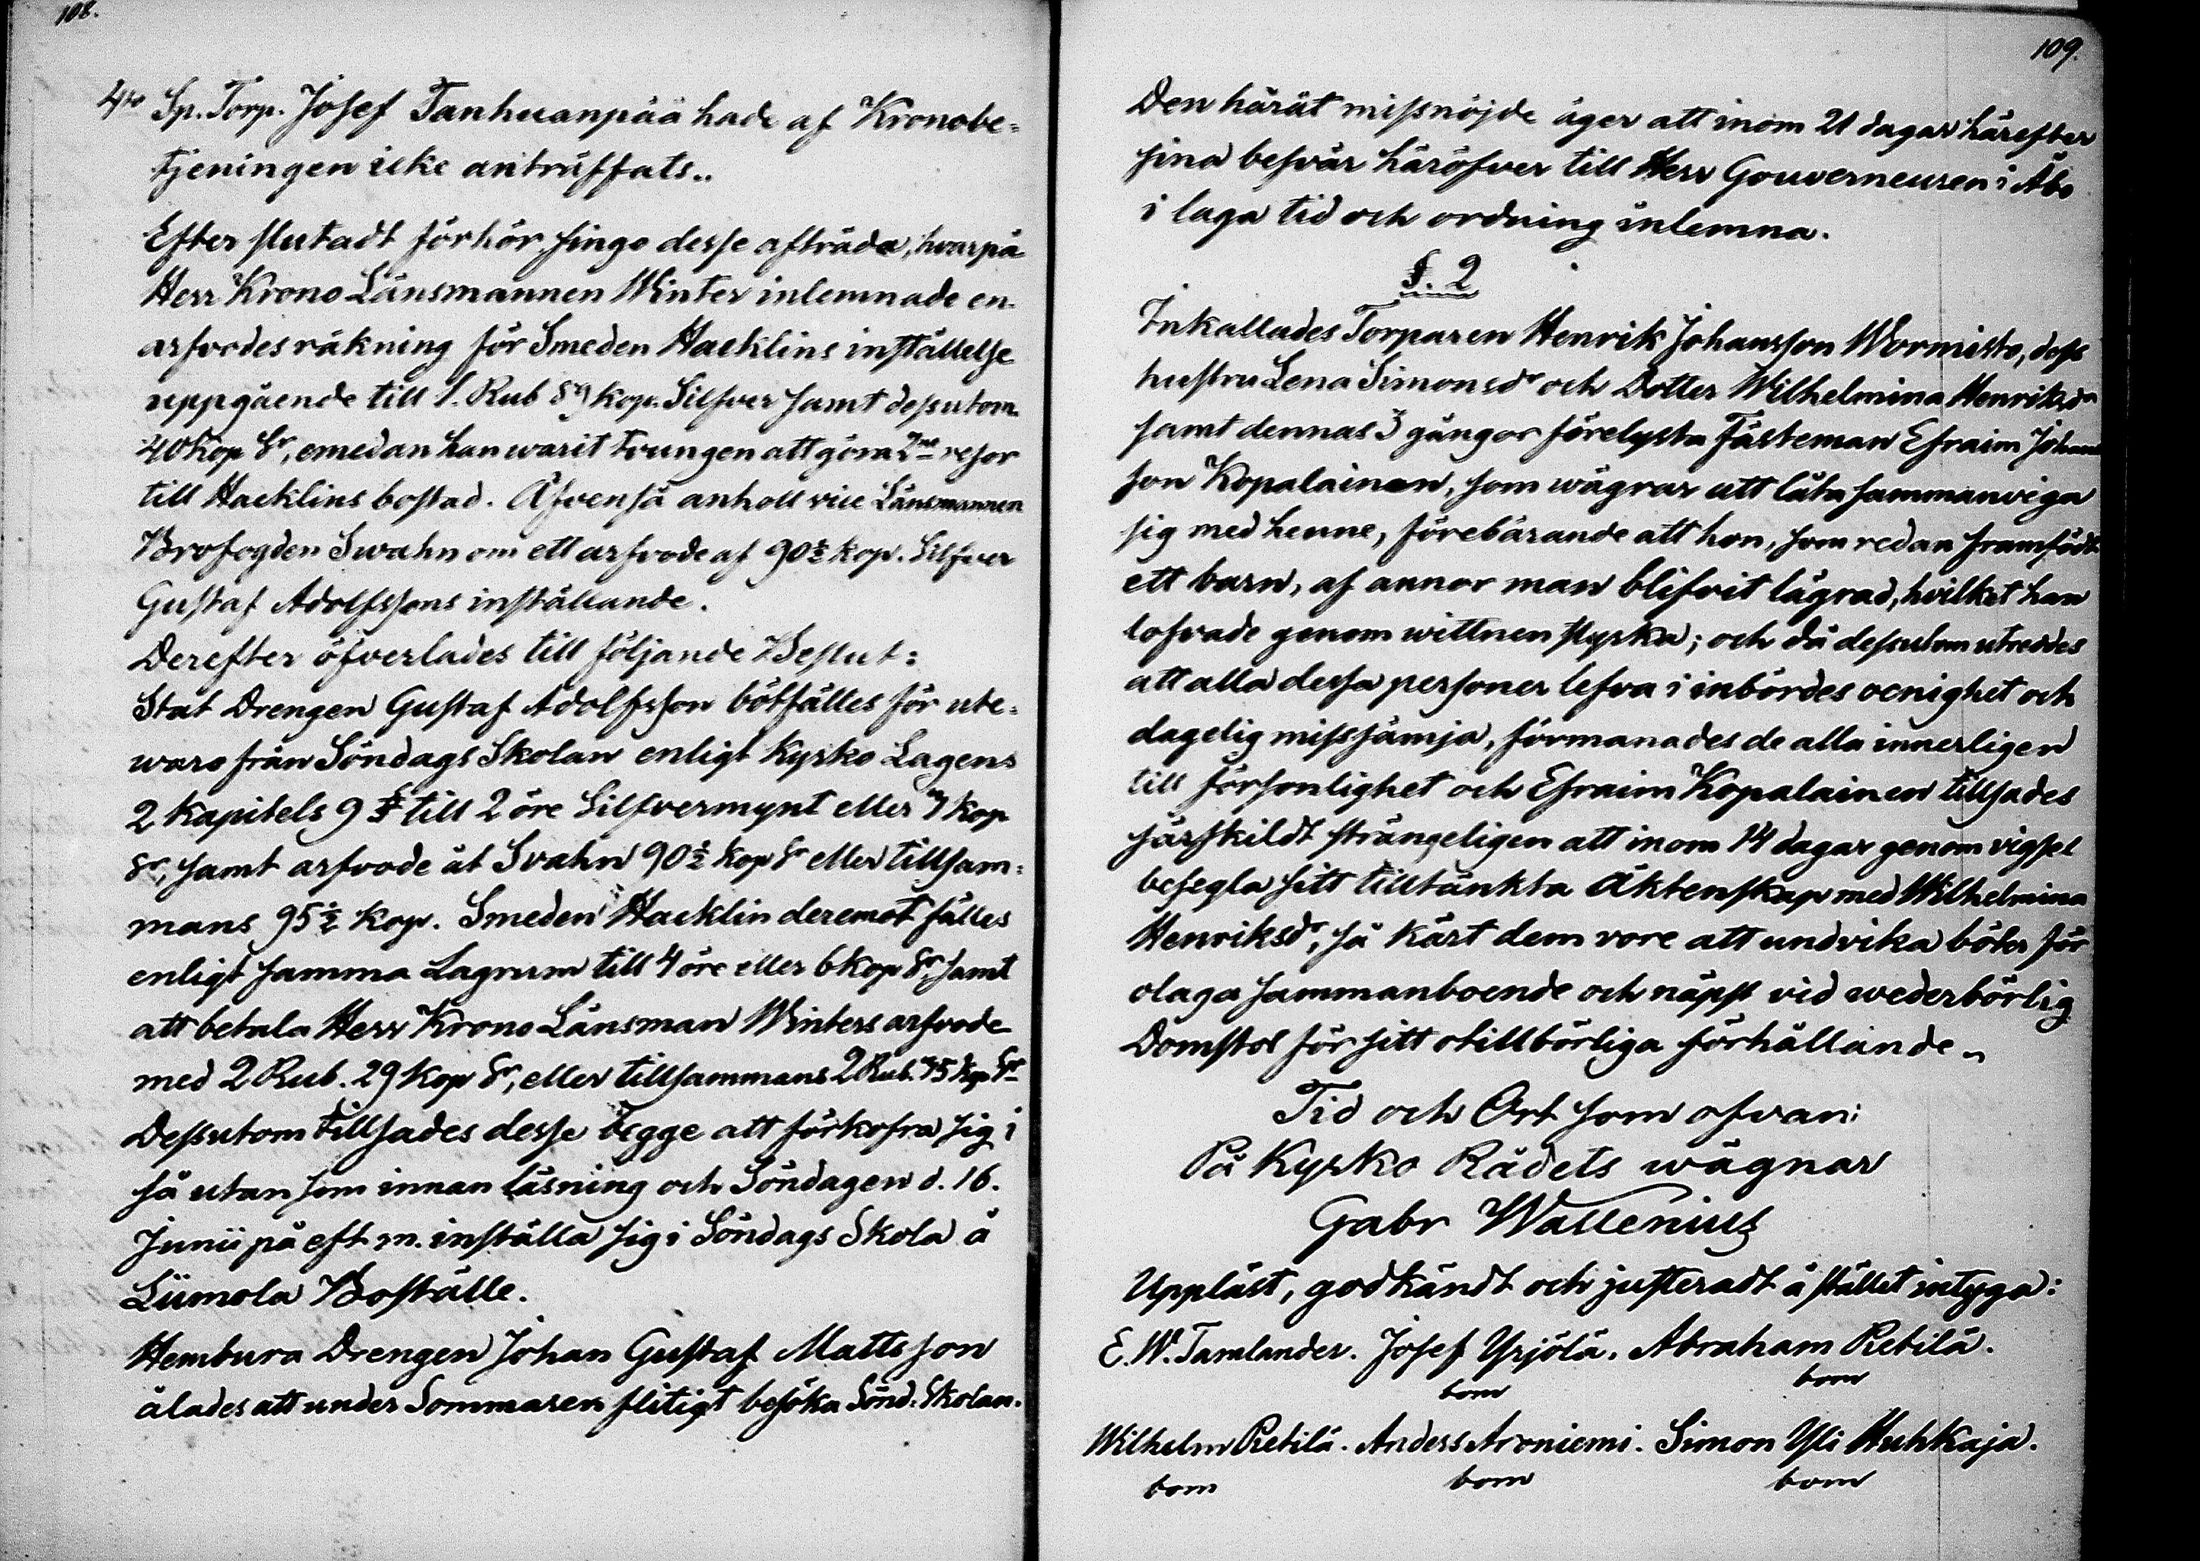 108.
4to Sp. Torp. Josef Tanhuanpää hade af Kronobe=
tjeningen icke anträffats..
Efter slutadt förhör fingo desse afträda, hvarpå
Herr Krono Länsmannen Winter inlemnade en
arfvodesräkning för Smeden Hacklins inställelse
uppgående till 1. Rub 89 kop. Silfver samt dessutom
40 kop Sr, emedan han warit tvungen att göra 2ne resor
till Hacklins bostad. Äfvenså anholl vice Länsmannen
Brofogden Swahn om ett arfvode af 90½ kop. Silfver
Gustaf Adolfssons inställande.
Derefter öfverlades till följande Beslut:
Stat Drengen Gustaf Adolfsson bötfälles för ute=
waro från Söndags Skolan enligt Kyrko Lagens
2 Kapitels 9 § till 2 öre Silfvermynt eller kop
Sr, samt arfvode åt Svahn 90½ kop Sr eller tillsam=
mans 95½ kop. Smeden Hacklin deremot fälles
enligt samma Lagrum till 4 öre eller 6 kop Sr, samt
att betala Herr Krono Länsman Winters arfvode
med 2 Rub. 29 kop Sr, eller tillsammans 2 Rub. kop Sr
Dessutom tillsades desse begge att förkofra sig i
så utan som innan läsning och Söndagen d. 16.
Junii på eft m. inställa sig i Söndags Skola å
Liimola Boställe.
Hembura Drengen Johan Gustaf Mattsson
ålades att under Sommaren flitigt besöka Sönd. Skolan.
109.
Den häråt missnöjde äger att inom 21 dagar härefter
sina besvär häröfver till Herr Gouverneuren i Åbo
i laga tid och ordning inlemna.
§. 2
Inkallades Torparen Henrik Johansson Wormisto, dess
hustru Lena Simonsdr och Dotter Wilhelmina Henriksdr
samt dennas 3 gångor förelysta Fästeman Efraim Johans
son Kopalainen, som wägrar att låta sammanviga
sig med henne, förebärande att hon, som redan framfödt
ett barn, af annor man blifvit lägrad, hvilket han
lofvade genom wittnen styrka; och då dessutom utreddes
att alla dessa personer lefva i inbördes oenighet och
dagelig misssämja, förmanades de alla innerligen
till försonlighet och Efraim Kopalainen tillsades
särskildt strängeligen att inom 14 dagar genom vigsel
besegla sitt tilltänkta Äktenskap med Wilhelmina
Henriksdr, så kärt dem vore att undvika böter för
olaga sammanboende och näpst vid wederbörlig
Domstol för sitt otillbörliga förhållande..
Tid och Ort som ofvan:
På Kyrko Rådets wägnar
Gabr Wallenius
Uppläst, godkändt och justeradt å stället intyga:
E. W. Tamlander. Josef Yrjölä. Abraham Retilä.
bom bom
Wilhelm Retilä. Anders Aroniemi. Simon Yli Huhkaja.
bom bom bom